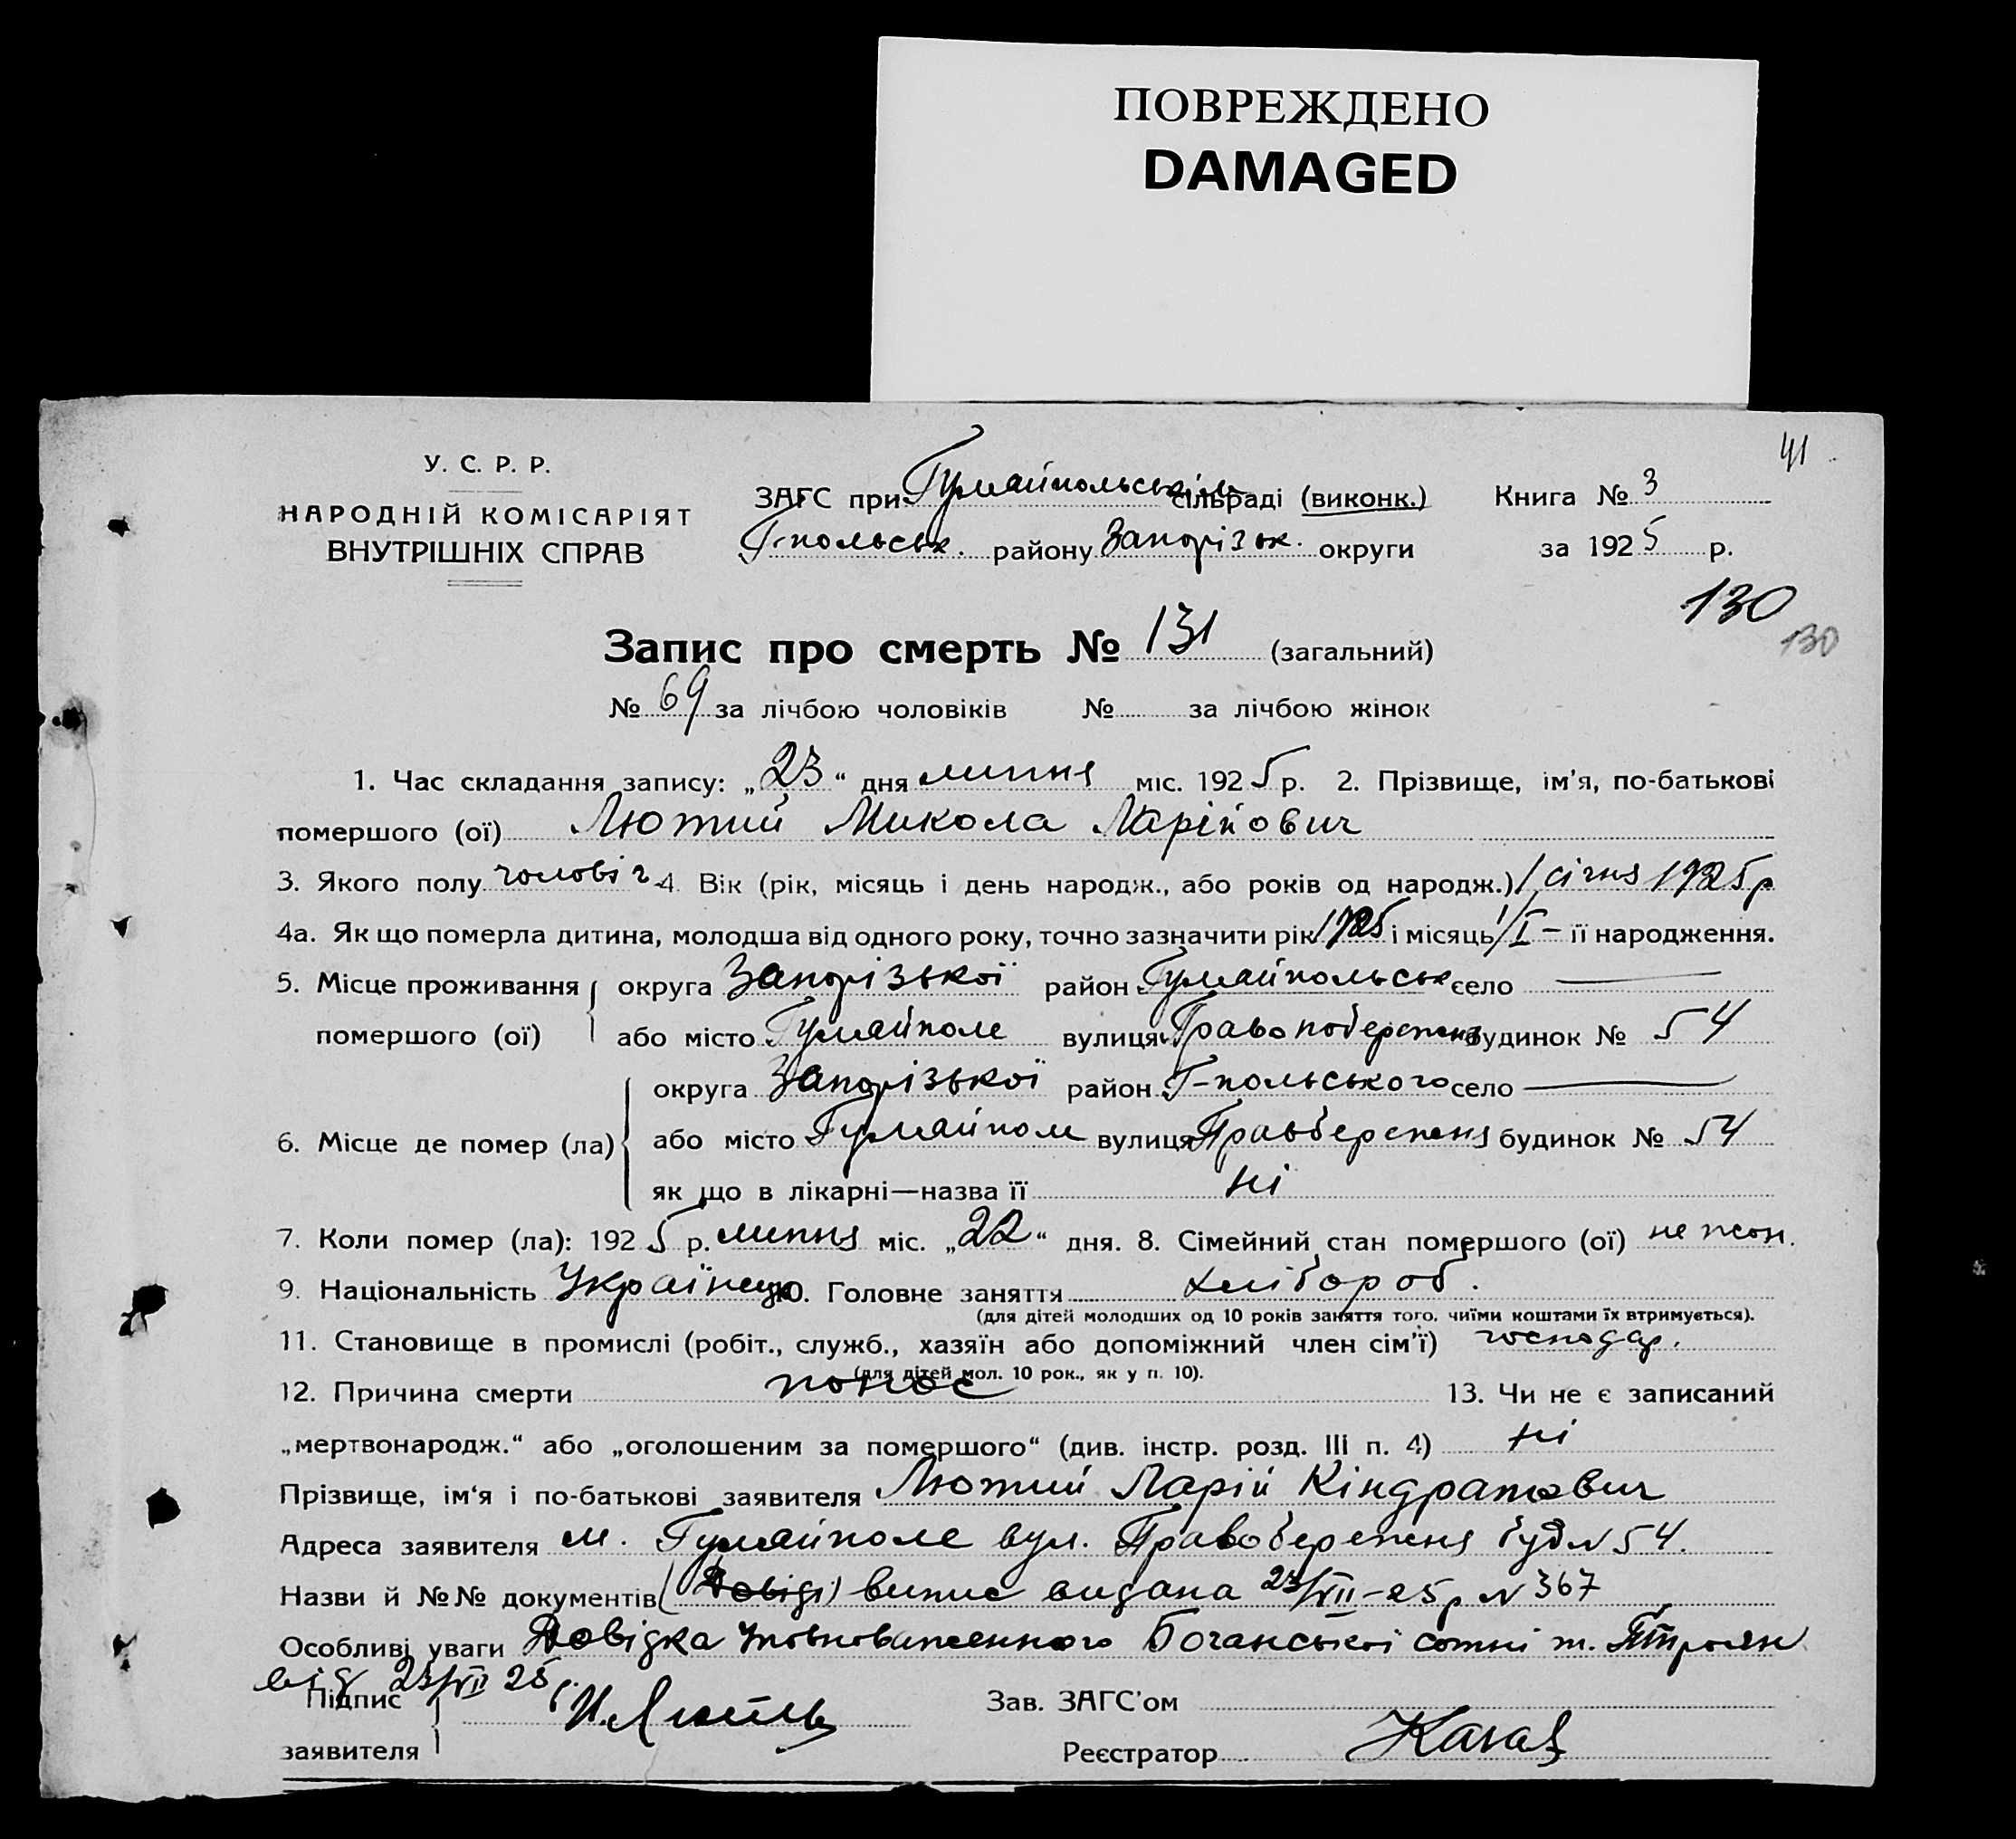 ПОВРЕЖДЕНО
DAMAGED
41
У. С. Р. Р.
НАРОДНІЙ КОМІСАРІЯТ
ВНУТРІШНІХ СПРАВ
ЗАГС при Гуляйпольськім сільраді (виконк.) Книга № 3
Г-польськ. району Запорізьк. округи за 1925 р.
130
130
Запис про смерть № 131 (загальний)
№ 69 за лічбою чоловіків № за лічбою жінок
1. Час складання запису: „23“ дня липня міс. 1925 р. 2. Прізвище, ім'я, по-батькові
помершого (ої) Лютий Микола Ларійович
3. Якого полу чоловіч 4. Вік (рік, місяць і день народж., або років од народж.) 1 січня 1925 р
4а. Як що померла дитина, молодша від одного року, точно зазначити рік 1925 і місяць 1/I – її народження.
5. Місце проживання округа Запорізької район Гуляйпольськ село —
помершого (ої) або місто Гуляйполе вулиця Правопобережна будинок № 54
округа Запорізької район Г-польського село —
6. Місце де помер (ла) або місто Гуляйполе вулиця Правбережня будинок № 54
як що в лікарні—назва її ні
7. Коли помер (ла): 1925 р. липня міс. „22“ дня. 8. Сімейний стан помершого (ої) не жон.
9. Національність Українець 10. Головне заняття хлібороб.
(для дітей молодших од 10 років заняття того, чиїми коштами їх втримується).
11. Становище в промислі (робіт., служб., хазяїн або допоміжний член сім'ї) господар.
(для дітей мол. 10 рок., як у п. 10).
12. Причина смерти понос 13. Чи не є записаний
„мертвонародж.“ або „оголошеним за помершого“ (див. інстр. розд. III п. 4) ні
Прізвище, ім'я і по-батькові заявителя Лютий Ларій Кіндратович
Адреса заявителя м. Гуляйполе вул. Правобережня буд N 54.
Назви й №№ документів (Довіді) випис видана 23/VII–25 р N 367
Особливі уваги Довідка Уповноваженного Бочанської сотні т. Троян
від 23/VII 25 р.
Підпис
заявителя И. Лютый
Зав. ЗАГС'ом
Реєстратор